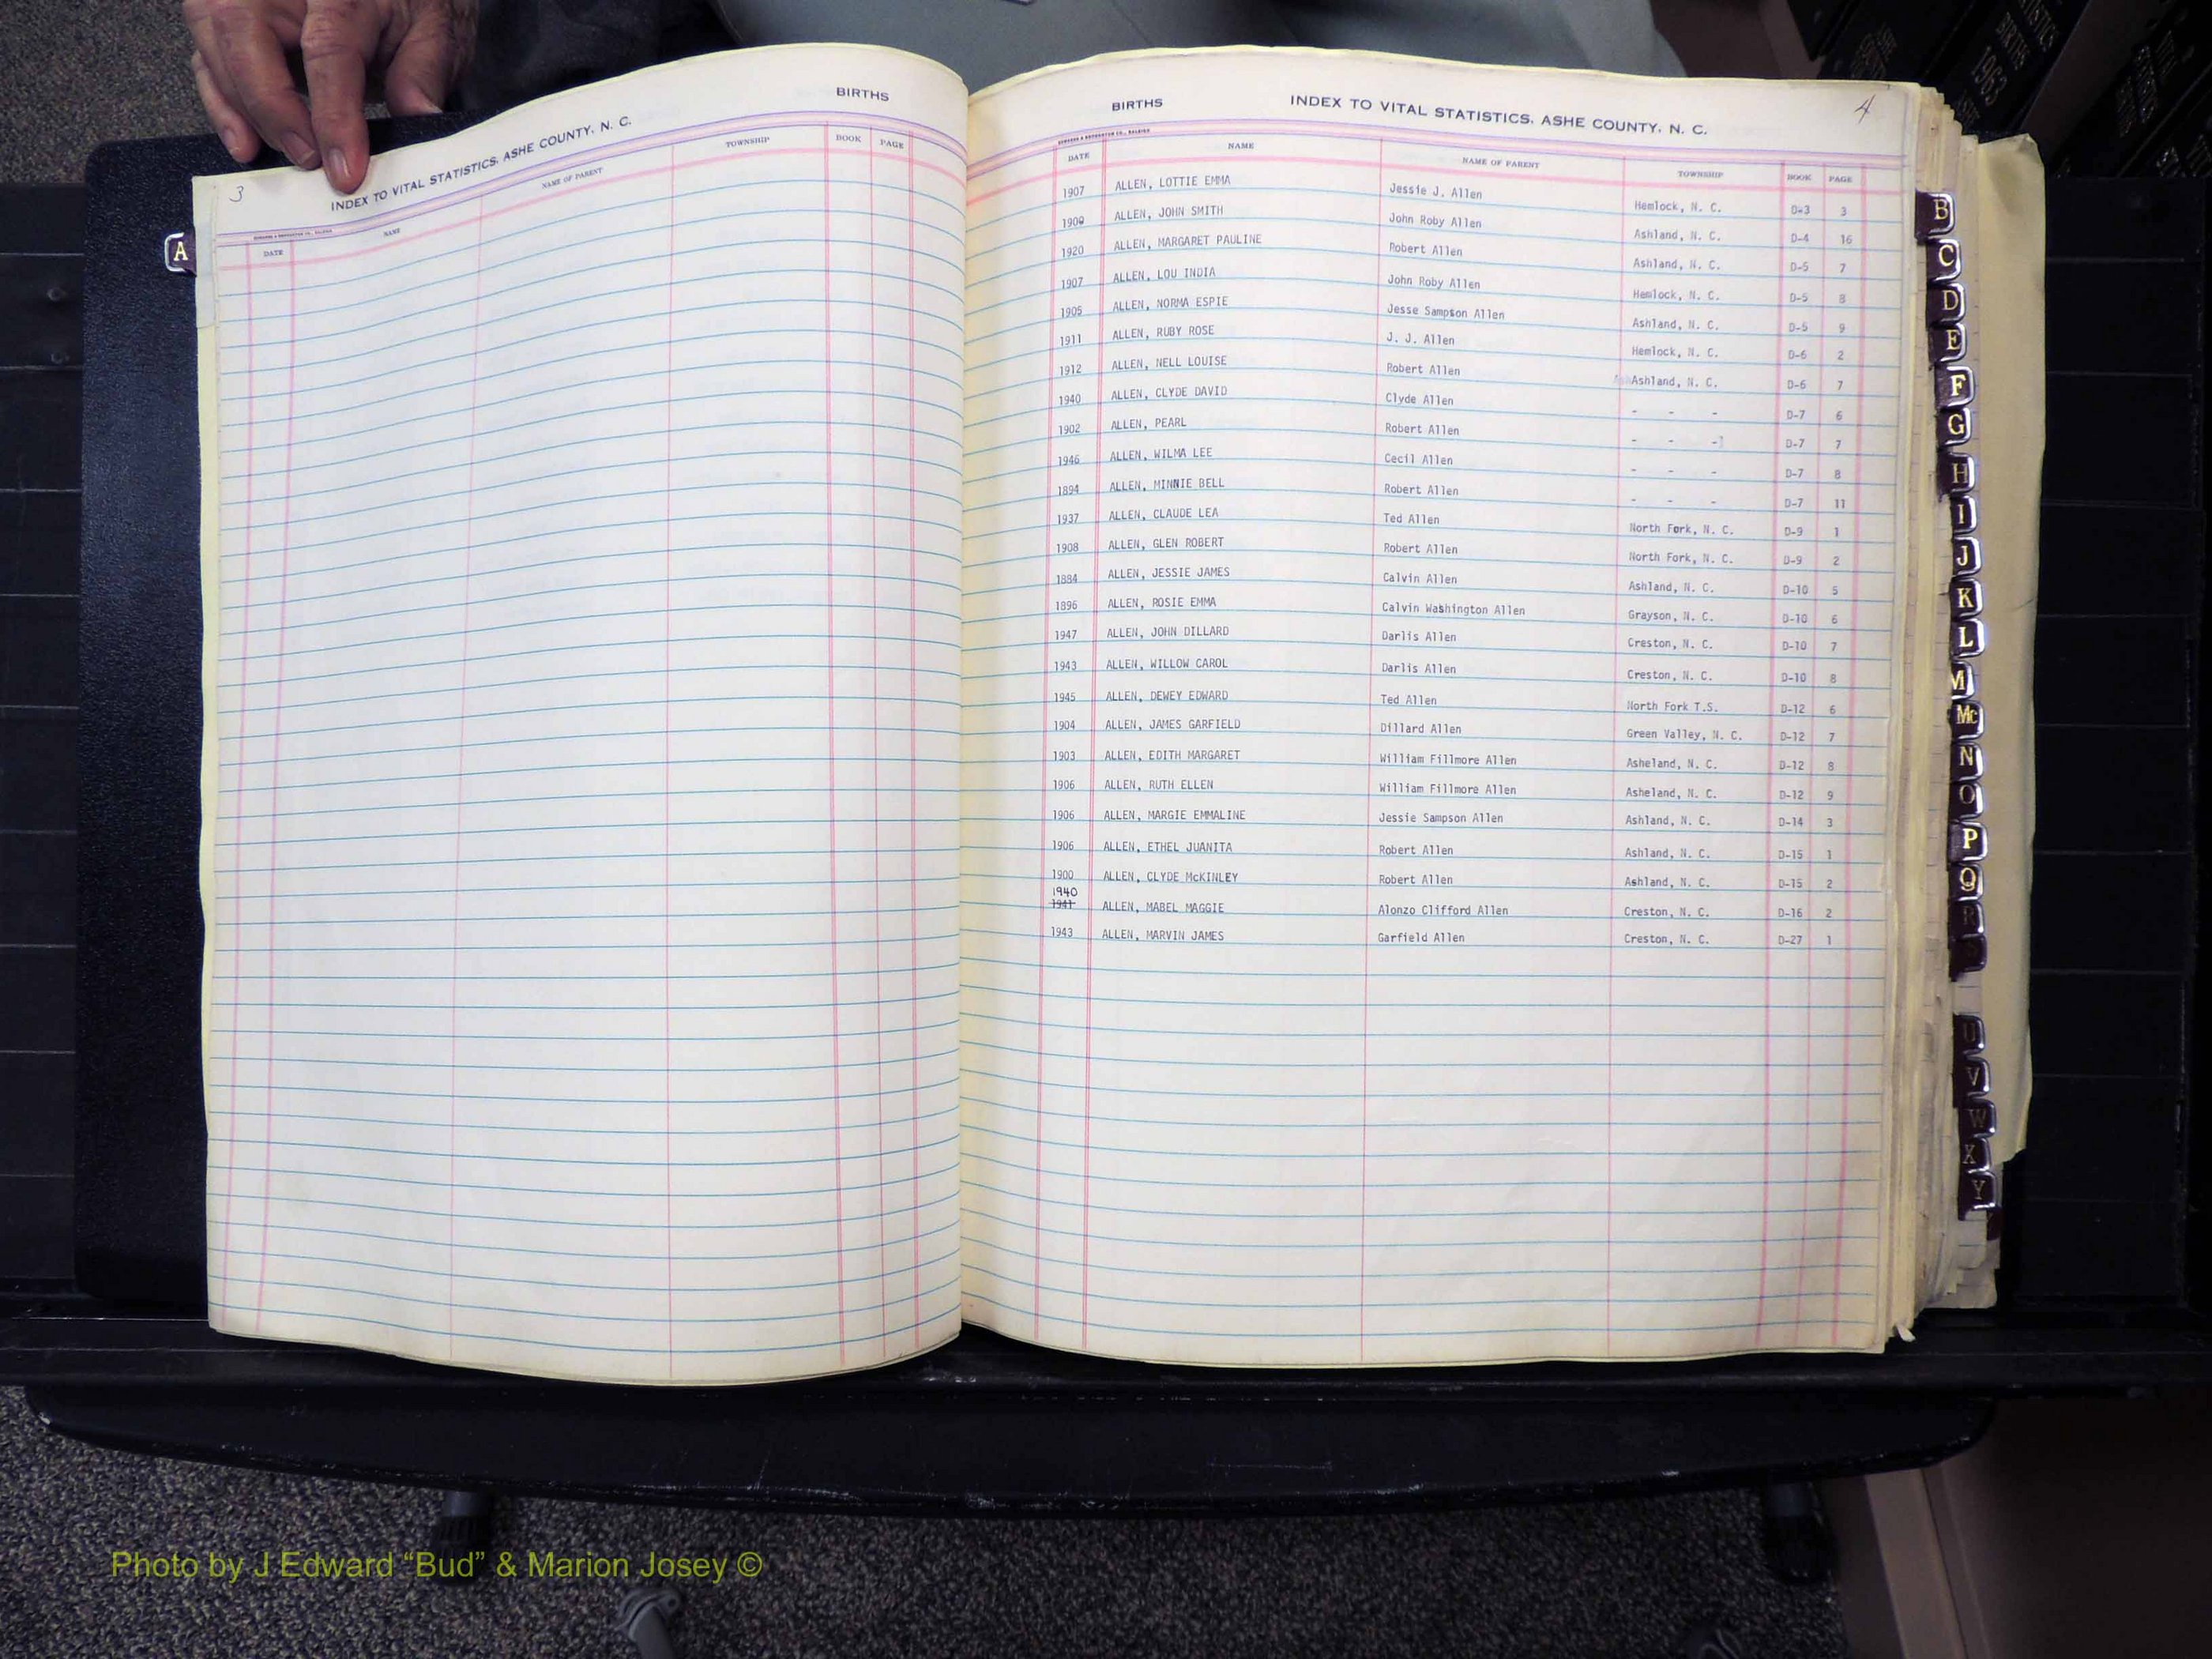 3
BIRTHS
INDEX TO VITAL STATISTICS. ASHE COUNTY. N. C.
DATE NAME NAME OF PARENT TOWNSHIP BOOK PAGE
A
BIRTHS INDEX TO VITAL STATISTICS. ASHE COUNTY. N. C. 4
DATE NAME NAME OF PARENT TOWNSHIP BOOK PAGE
1907 ALLEN, LOTTIE EMMA Jessie J. Allen Hemlock, N. C. D-3 3
ALLEN, JOHN SMITH John Roby Allen Ashland, N. C. D-4 16
1920 ALLEN, MARGARET PAULINE Robert Allen Ashland, N. C. D-5 7
1907 ALLEN, LOU INDIA John Roby Allen Hemlock, N. C. D-5 8
1905 ALLEN, NORMA ESPIE Jesse Sampson Allen Ashland, N. C. D-5 9
1911 ALLEN, RUBY ROSE J. J. Allen Hemlock, N. C. D-6 2
1912 ALLEN, NELL LOUISE Robert Allen Ashland, N. C. D-6 7
1940 ALLEN, CLYDE DAVID Clyde Allen - - - D-7 6
1902 ALLEN, PEARL Robert Allen - - - D-7 7
1946 ALLEN, WILMA LEE Cecil Allen - - - D-7 8
1894 ALLEN, MINNIE BELL Robert Allen - - - D-7 11
1937 ALLEN, CLAUDE LEA Ted Allen North Fork, N. C. D-9 1
1908 ALLEN, GLEN ROBERT Robert Allen North Fork, N. C. D-9 2
1884 ALLEN, JESSIE JAMES Calvin Allen Ashland, N. C. D-10 5
1896 ALLEN, ROSIE EMMA Calvin Washington Allen Grayson, N. C. D-10 6
1947 ALLEN, JOHN DILLARD Darlis Allen Creston, N. C. D-10 7
1943 ALLEN, WILLOW CAROL Darlis Allen Creston, N. C. D-10 8
1945 ALLEN, DEWEY EDWARD Ted Allen North Fork T.S. D-12 6
1904 ALLEN, JAMES GARFIELD Dillard Allen Green Valley, N. C. D-12 7
1903 ALLEN, EDITH MARGARET William Fillmore Allen Asheland, N. C. D-12 8
1906 ALLEN, RUTH ELLEN William Fillmore Allen Asheland, N. C. D-12 9
1906 ALLEN, MARGIE EMMALINE Jessie Sampson Allen Ashland, N. C. D-14 3
1906 ALLEN, ETHEL JUANITA Robert Allen Ashland, N. C. D-15 1
1900 ALLEN, CLYDE McKINLEY Robert Allen Ashland, N. C. D-15 2
1940
1941 ALLEN, MABEL MAGGIE Alonzo Clifford Allen Creston, N. C. D-16 2
1943 ALLEN, MARVIN JAMES Garfield Allen Creston, N. C. D-27 1
B
C
D
E
F
G
H
I
J
K
L
M
Mc
N
O
P
Q
R
U
V
W
X
Y
BIRTHS
1963
Photo by J Edward “Bud” & Marion Josey ©